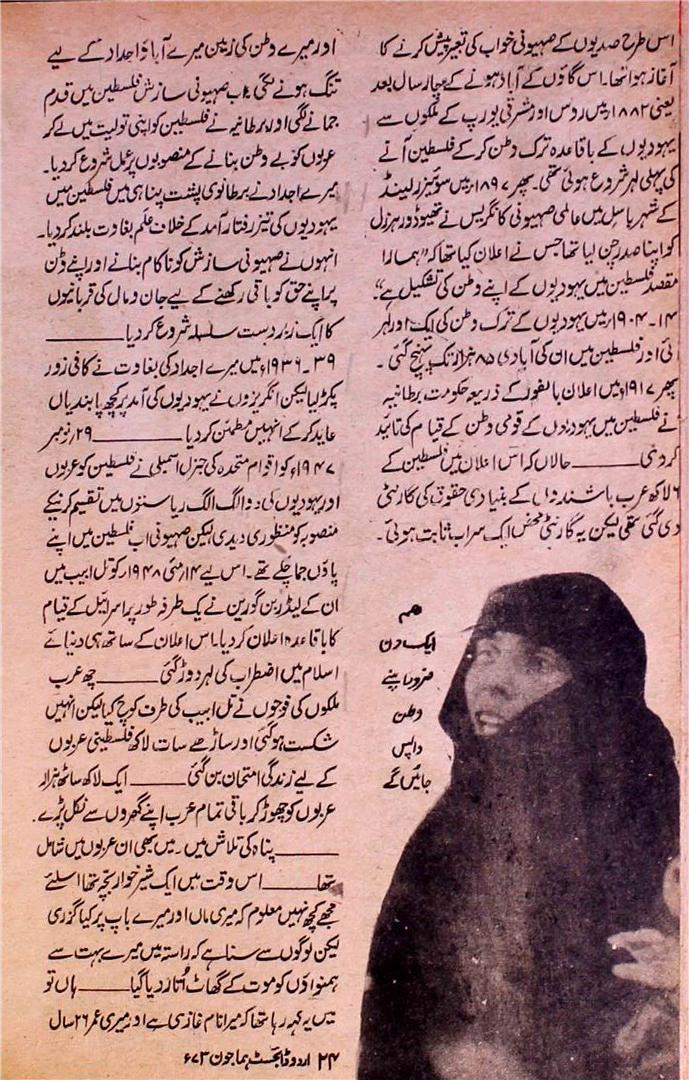 اس طرح صدیوں کے صہیونی خواب کی تعبیر پیش کرنے کا
آغاز ہوا تھا۔ اس گاؤں کے آباد ہونے کے چار سال بعد
یعنی ۱۸۸۲ء میں روس اور مشرقی یورپ کے ملکوں سے
یہودیوں کے باقاعدہ ترک وطن کر کے فلسطین آنے
کی پہلی لہر شروع ہوئی تھی۔ پھر ۱۸۹۷ء میں سوئیزر لینڈ
کے شہر باسل میں عالمی صہیونی کانگریس نے تھیوڈور ہرزل
کو اپنا صدر چن لیا تھا جس نے اعلان کیا تھا کہ "ہمارا
مقصد فلسطین میں یہودیوں کے اپنے وطن کی تشکیل ہے"۔
۱۴۔۱۹۰۴ء میں یہودیوں کے ترک وطن کی ایک اور لہر
آئی اور فلسطین میں ان کی آبادی ۸۵ ہزار تک پہنچ گئی۔
پھر ۱۹۱۷ء میں اعلان بالفور کے ذریعہ حکومت برطانیہ
نے فلسطین میں یہودیوں کے قومی وطن کے قیام کی تائید
کر دی ——— حالاں کہ اس اعلان میں فلسطین کے
۶ لاکھ عرب باشندوں کے بنیادی حقوق کی گارنٹی
دی گئی تھی لیکن یہ گارنٹی محض ایک سراب ثابت ہوئی۔
ہم
ایک دن
ضرور اپنے
وطن
واپس
جائیں گے
اور میرے وطن کی زمین میرے آباؤ اجداد کے لیے
تنگ ہونے لگی، اب صہیونی سازش فلسطین میں قدم
جمانے لگی اور برطانیہ نے فلسطین کو اپنی تولیت میں لے کر
عربوں کو بے وطن بنانے کے منصوبوں پر عمل شروع کر دیا۔
میرے اجداد نے برطانوی پشت پناہی میں فلسطین میں
یہودیوں کی تیز رفتار آمد کے خلاف علم بغاوت بلند کر دیا۔
انہوں نے صہیونی سازش کو ناکام بنانے اور اپنے وطن
پر اپنے حق کو باقی رکھنے کے لیے جان و مال کی قربانیوں
کا ایک زبردست سلسلہ شروع کر دیا ———
۳۹۔۱۹۳۶ء میں میرے اجداد کی بغاوت نے کافی زور
پکڑ لیا لیکن انگریزوں نے یہودیوں کی آمد پر کچھ پابندیاں
عاید کر کے انہیں مطمئن کر دیا ——— ۲۹ نومبر
۱۹۴۷ء کو اقوام متحدہ کی جنرل اسمبلی نے فلسطین کو عربوں
اور یہودیوں کی دو الگ الگ ریاستوں میں تقسیم کرنیکے
منصوبہ کو منظوری دیدی لیکن صہیونی اب فلسطین میں اپنے
پاؤں جما چکے تھے۔ اس لیے ۱۴ مئی ۱۹۴۸ء کو تل ابیب میں
ان کے لیڈر بن گورین نے یک طرفہ طور پر اسرائیل کے قیام
کا باقاعدہ اعلان کر دیا۔ اس اعلان کے ساتھ ہی دنیائے
اسلام میں اضطراب کی لہر دوڑ گئی ——— چھ عرب
ملکوں کی فوجوں نے تل ابیب کی طرف کوچ کیا لیکن انہیں
شکست ہو گئی اور ساڑھے سات لاکھ فلسطینی عربوں
کے لیے زندگی امتحان بن گئی ——— ایک لاکھ ساٹھ ہزار
عربوں کو چھوڑ کر باقی تمام عرب اپنے گھروں سے نکل پڑے۔
——— پناہ کی تلاش میں۔ میں بھی ان عربوں میں شامل
تھا ——— اس وقت میں ایک شیر خوار بچہ تھا اسلئے
مجھے کچھ نہیں معلوم کہ میری ماں اور میرے باپ پر کیا گزری
لیکن لوگوں سے سنا ہے کہ راستہ میں میرے بہت سے
ہمنواؤں کو موت کے گھاٹ اتار دیا گیا ——— ہاں تو
میں یہ کہہ رہا تھا کہ میرا نام غازی ہے اور میری عمر ۲۶ سال
۲۴ اردو ڈائجسٹ ہما جون ۷۳ء